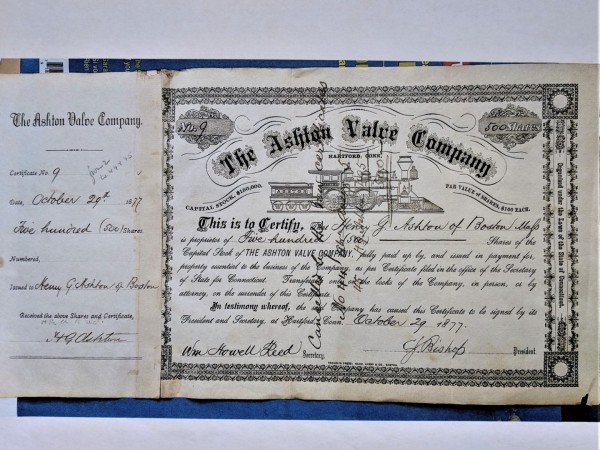 The Ashton Valve Company.
Certificate No. 9
Date, October 29th 1877
Five hundred (500) Shares
Numbered,
Issued to Henry G Ashton of Boston
Received the above Shares and Certificate,
H G Ashton
No. 9
500 Shares
The Ashton Valve Company
HARTFORD, CONN.
CAPITAL STOCK, $100,000.
PAR VALUE of SHARES, $100 EACH.
This is to Certify, That Henry G. Ashton of Boston Mass
is proprietor of Five hundred Shares of the
Capital Stock of THE ASHTON VALVE COMPANY, fully paid up by, and issued in payment for,
property essential to the business of the Company, as per Certificate filed in the office of the Secretary
of State for Connecticut. Transferable only on the books of the Company, in person, or by
attorney, on the surrender of this Certificate.
In testimony whereof, the said Company has caused this Certificate to be signed by its
President and Secretary, at Hartford, Conn. October 29 1877.
Wm Howell Reed Secretary.
J. Bishop President.
Organized under the Laws of the State of Connecticut.
Cancelled